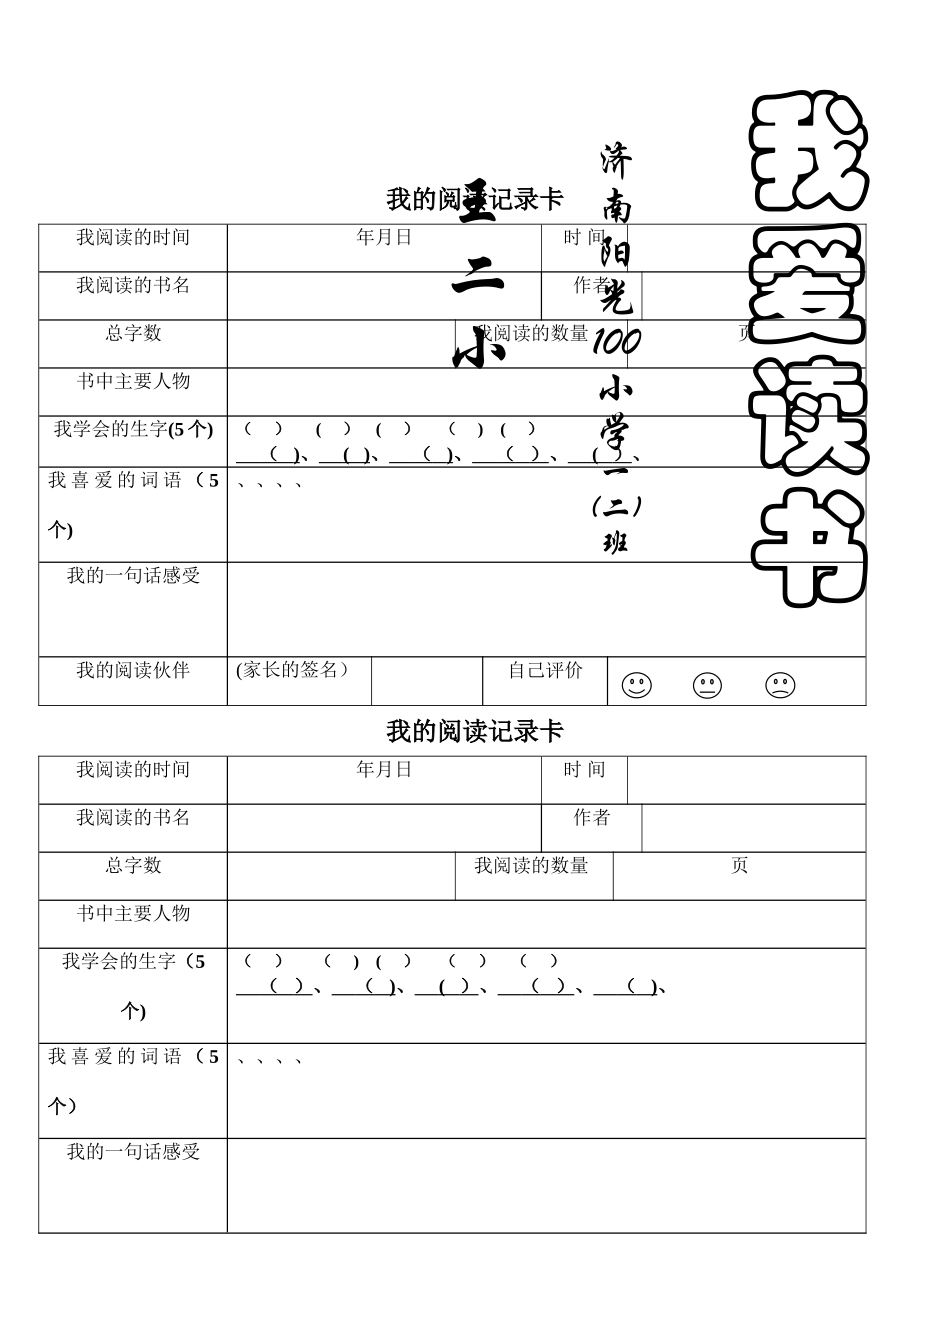 我爱读书
济南阳光100小学一（二）班
王二小
我的阅读记录卡
我阅读的时间 年月日 时 间
我阅读的书名 作者
总字数 我阅读的数量 页
书中主要人物
我学会的生字(5 个) （ ） ( ） ( ） （ ） ( ）
（ ）、 ( )、 （ ）、 （ ）、 ( ）、
我喜爱的词语（5 、、、、
个)
我的一句话感受
我的阅读伙伴 (家长的签名） 自己评价
我的阅读记录卡
我阅读的时间 年月日 时 间
我阅读的书名 作者
总字数 我阅读的数量 页
书中主要人物
我学会的生字（5 （ ） （ ） ( ） （ ） （ ）
个) （ ）、 （ )、 ( ）、 （ ）、 （ )、
我喜爱的词语（5 、、、、
个）
我的一句话感受